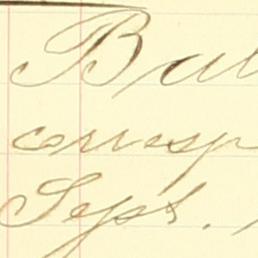 Bal
corresp
Sept.